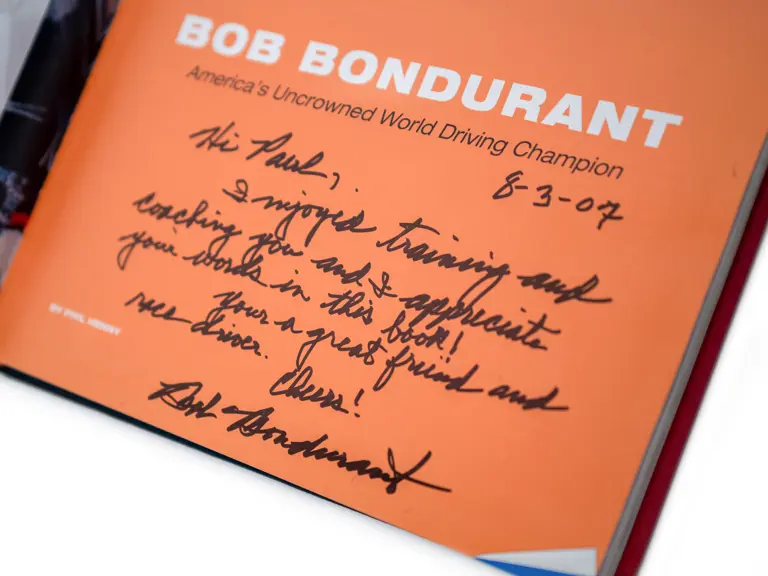 BOB BONDURANT
America's Uncrowned World Driving Champion
8-3-07
Hi Paul,
I injoyed training and
coaching you and I appreciate
your words in this book!
your a great friend and
race driver.
Cheers!
Bob Bondurant
BY PHIL HENNY